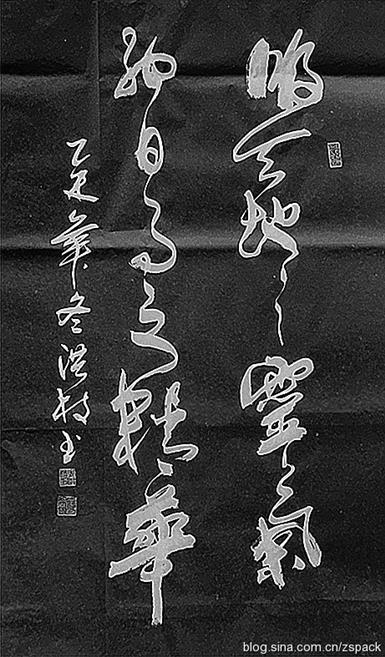 天地之靈氣
納日月之精華
乙 年冬洪 书
blog.sina.com.cn/zspack